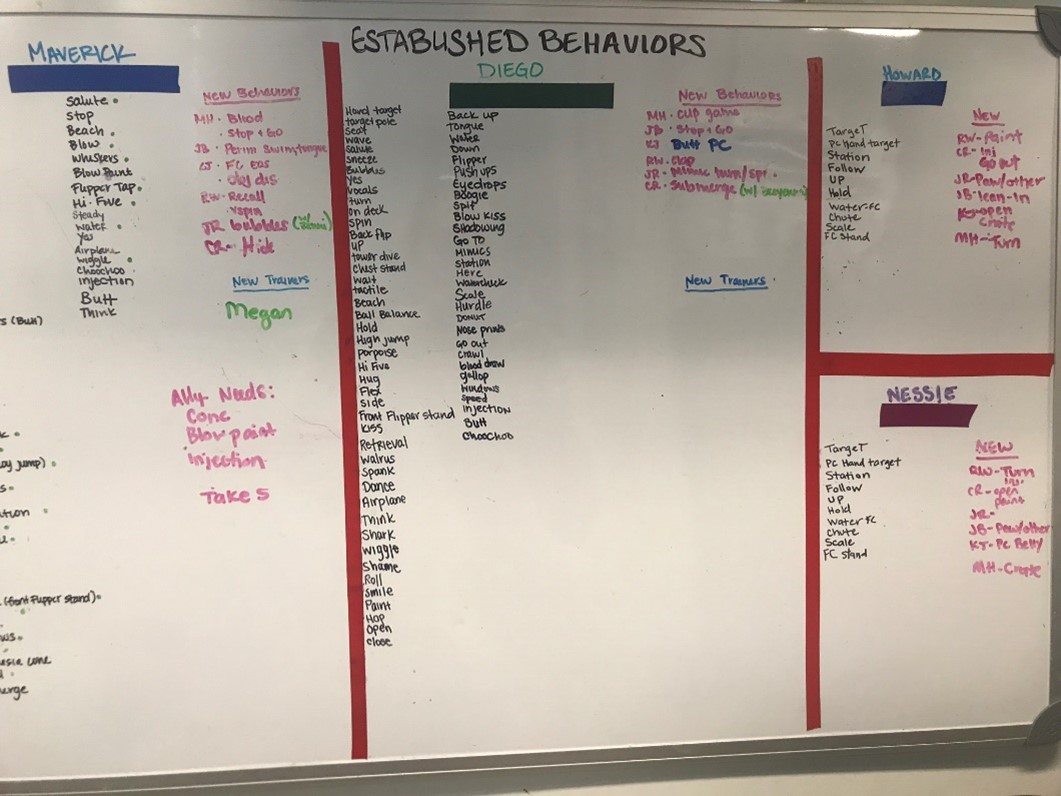 ESTABLISHED BEHAVIORS
MAVERICK
Salute
Stop
Beach
Blow
Whiskers
Blow Paint
Flipper Tap
Hi-Five
Steady
water
Yes
Airplane
wiggle
Choochoo
injection
Butt
Think
New Behaviors
MH - Blood
Stop + Go
JB -
KJ - FC
RW - Recall
JR bubbles
CR -
New Trainers
Megan
Ally Needs:
Cone
Blow paint
Injection
Take 5
DIEGO
Hand target
target pole
seat
wave
salute
sneeze
Bubbles
Yes
vocals
turn
on deck
spin
Back flip
up
tower dive
Chest stand
wait
tactile
Beach
Ball Balance
Hold
High jump
porpoise
Hi Five
Hug
Flex
side
Front Flipper stand
kiss
Retrieval
walrus
Spank
Dance
Airplane
Think
Shark
wiggle
Shame
Roll
Smile
Paint
Hop
Open
close
Back up
Tongue
Water
Down
Flipper
Push ups
Eyedrops
Boogie
Spit
Blow kiss
Shadowing
Go To
Mimics
Station
Here
Scale
Hurdle
DONUT
Nose prints
Go out
crawl
blood draw
gallop
speed
injection
Butt
Choochoo
New Behaviors
MH - cup game
JB - Stop + Go
KJ Butt PC
RW - Clap
JR - Mimic turn/spi
CR - Submerge
New Trainers
HOWARD
TargeT
PC Hand target
Station
Follow
UP
Hold
Water-FC
Chute
Scale
FC Stand
New
RW-Paint
CR-Inj
Go out
JR-Paw/other
JB-lean-In
KJ-open
Crate
MH-Turn
NESSIE
TargeT
PC Hand target
Station
Follow
up
Hold
water FC
chute
Scale
FC stand
NEW
RW-Turn
inj.
CR-open
paint
JR-
JB-Paw/other
KJ-PC Belly
MH-Crate
s (Butt)
(front Flipper stand)